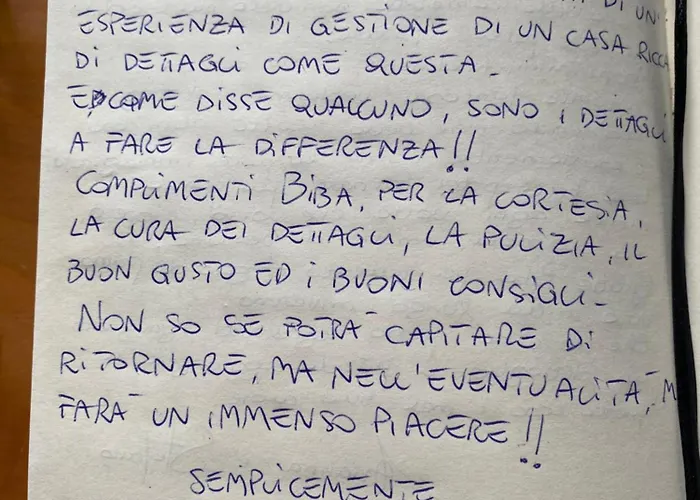 DI UN
ESPERIENZA DI GESTIONE DI UN CASA RICCA
DI DETTAGLI COME QUESTA -
ED COME DISSE QUALCUNO, SONO I DETTAGLI
A FARE LA DIFFERENZA!!
COMPLIMENTI BIBA, PER LA CORTESIA,
LA CURA DEI DETTAGLI, LA PULIZIA, IL
BUON GUSTO ED I BUONI CONSIGLI -
NON SO SE POTRÀ CAPITARE DI
RITORNARE, MA NELL'EVENTUALITÀ, M
FARÀ UN IMMENSO PIACERE!!
SEMPLICEMENTE